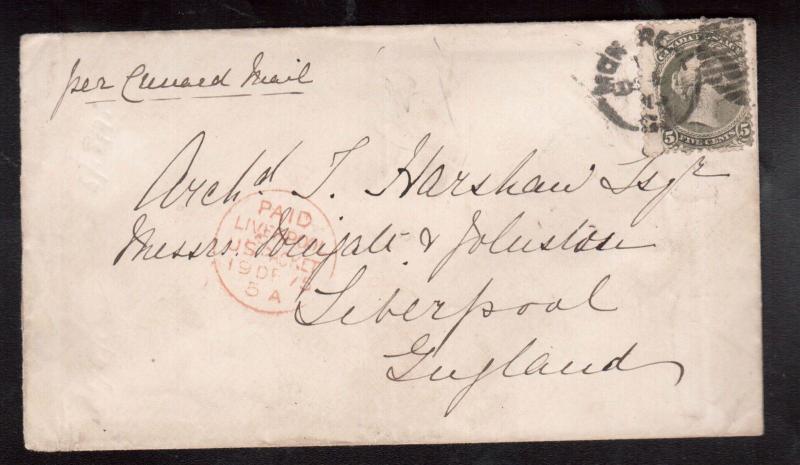 per Cunard Mail
CANADA POSTAGE
5 FIVE CENTS 5
Archd. T. Harshaw Esqr
Messrs. & Johnston
Liverpool
England
PAID
LIVERPOOL
US PACKET
19 DE 75
5 A